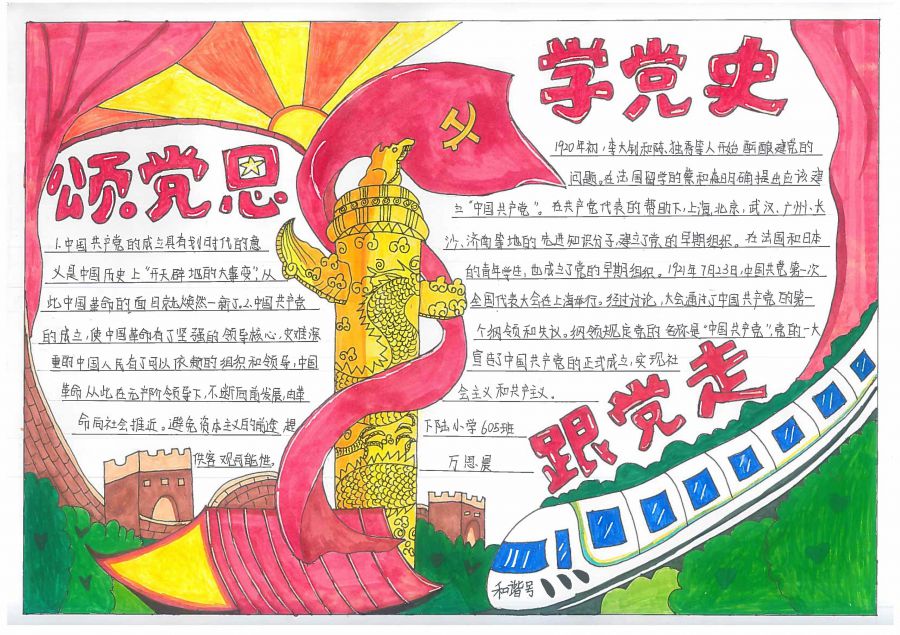 颂党恩
1.中国共产党的成立具有划时代的意
义是中国历史上“开天辟地的大事变”从
此中国革命的面目就焕然一新了.2.中国共产党
的成立,使中国革命有了坚强的领导核心,灾难深
重的中国人民有了可以依赖的组织和领导,中国
革命从此在无产阶领导下,不断向前发展,由革
命向社会推近。避免资本主义的前途提
供客观可能性。
学党史
1920年初,李大钊和陈、独秀等人开始酝酿建党的
问题。在法国留学的蔡和森明确提出应该建
立“中国共产党”。在共产党代表的帮助下,上海,北京,武汉、广州、长
沙、济南等地的先进知识分子,建立了党的早期组织。在法国和日本
的青年学生,也成立了党的早期组织。1921年7月23日,中国共党第一次
全国代表大会在上海举行。经过讨论,大会通过了中国共产党的第一
个纲领和决议。纲领规定党的名称是“中国共产党”,党的一大
宣告了中国共产党的正式成立,实现社
会主义和共产主义.
跟党走
下陆小学605班
万思晨
和谐号